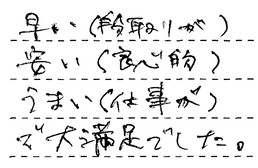 早い（段取りが）
安い（良心的）
うまい（仕事が）
で大満足でした。